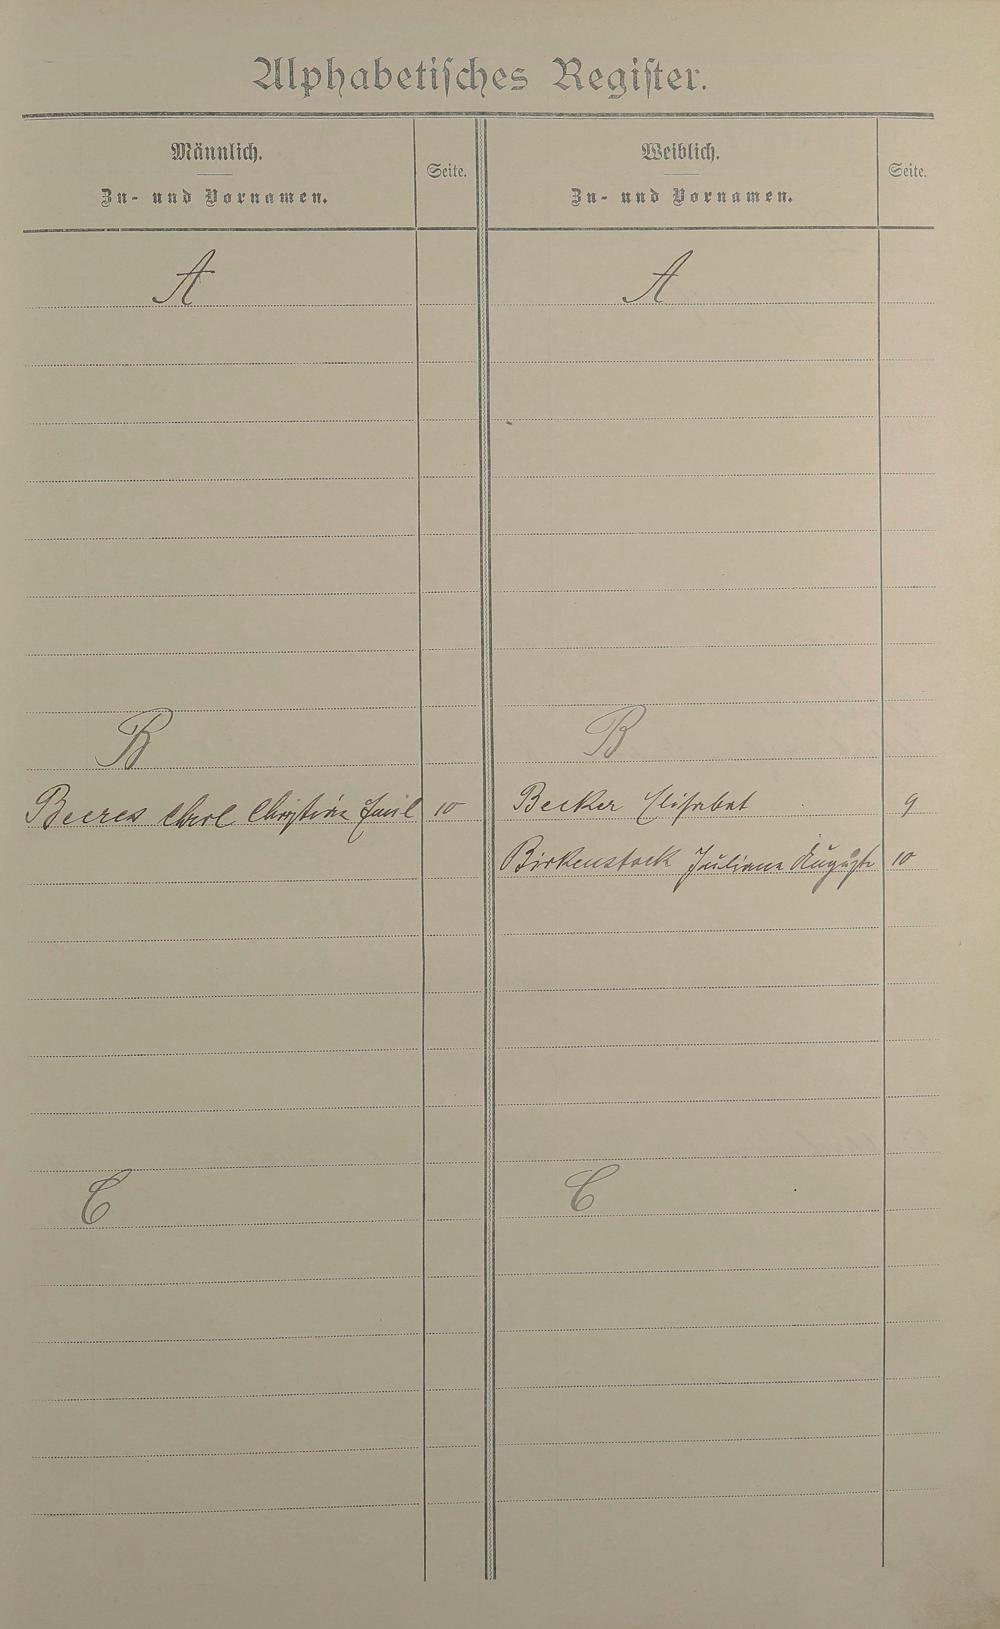 Alphabetisches Register.
Männlich.
Zu- und Vornamen.
Seite.
Weiblich.
Zu- und Vornamen.
Seite.
A
A
B
B
Beeres Carl Christian Emil 10
Becker Elisabet 9
Birkenstock Juliane Auguste 10
C
C